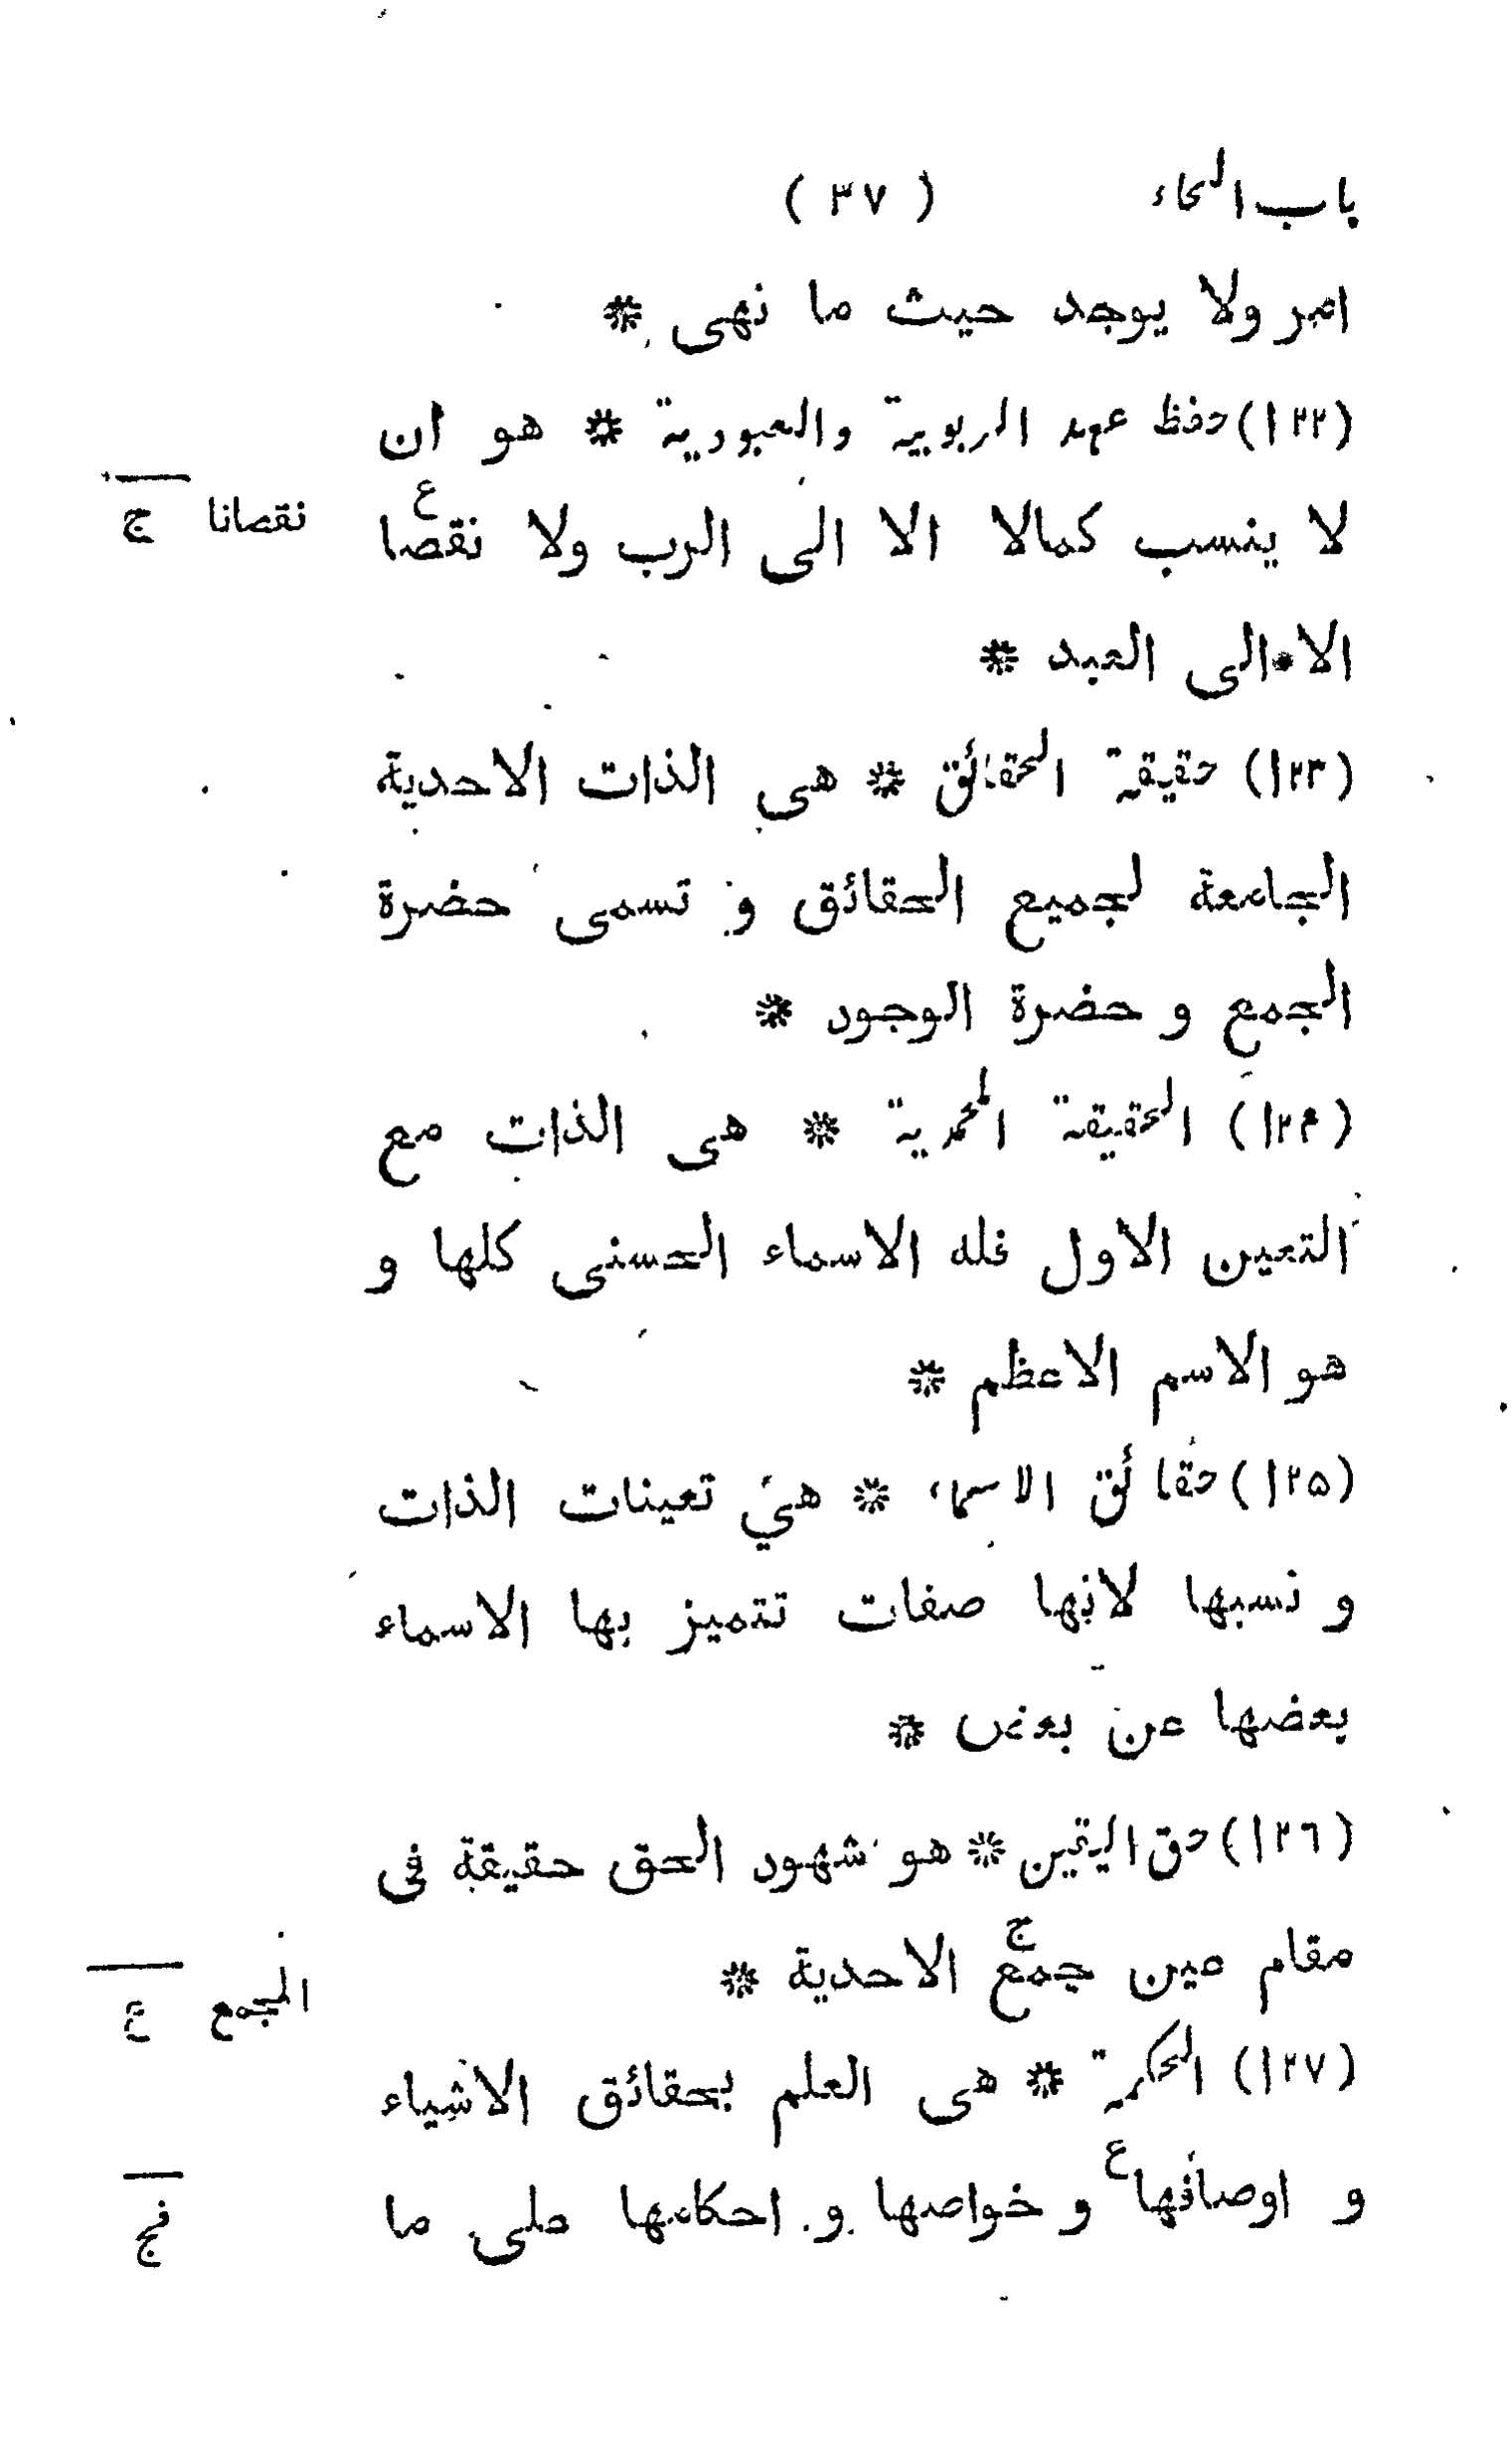 باب الحاء ( ٣٧ )
امر ولا يوجد حيث ما نهى *
(١٢٢) حفظ عهد الربوبية والعبودية * هو ان
لا ينسب كمالا الا الى الرب ولا نقصا ع
نقصانا ج
الا الى العبد *
(١٢٣) حقيقة الحقائق * هى الذات الاحدية
الجامعة لجميع الحقائق و تسمى حضرة
الجمع و حضرة الوجود *
(١٢۴) الحقيقة المحمدية * هى الذات مع
التعين الاول فله الاسماء الحسنى كلها و
هو الاسم الاعظم *
(١٢۵) حقائق الاسماء * هي تعينات الذات
و نسبها لانها صفات تتميز بها الاسماء
بعضها عن بعض *
(١٢٦) حق اليقين * هو شهود الحق حقيقة فى
مقام عين جمع ج الاحدية *
المجمع ع
(١٢٧) الحكمة * هى العلم بحقائق الاشياء
و اوصافها ع و خواصها و احكامها على ما